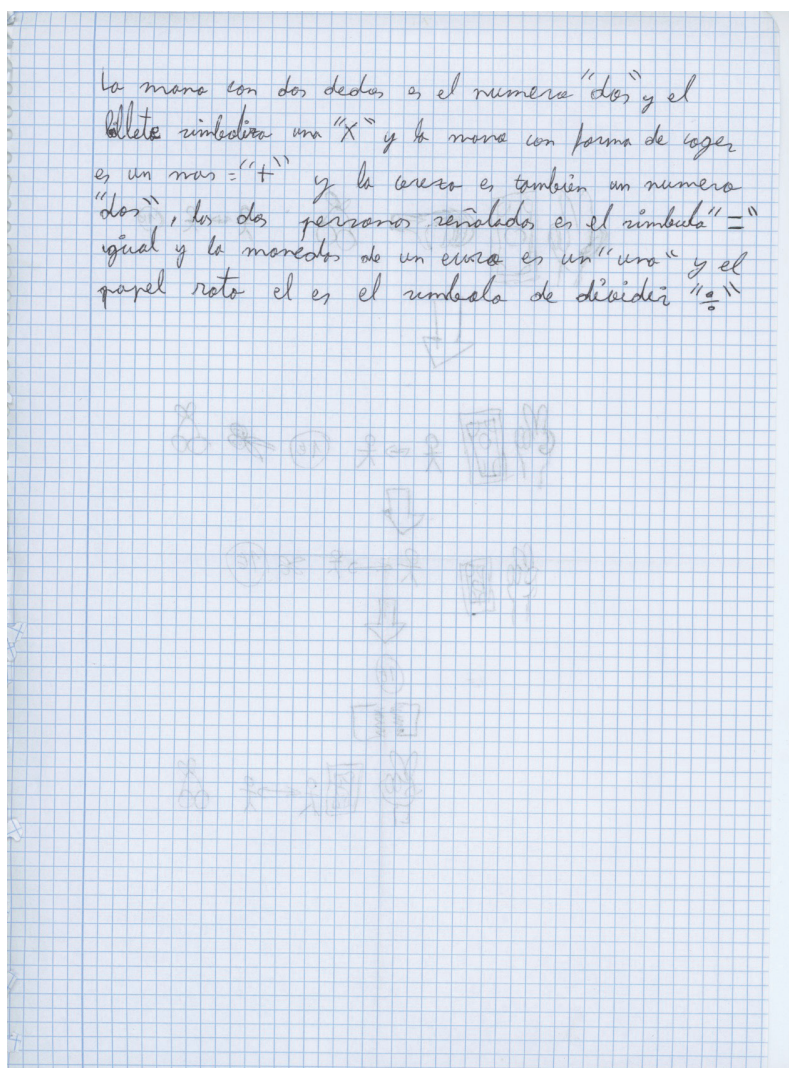 La mano con dos dedos es el numero "dos" y el
billete simboliza una "X" y la mano con forma de coger
es un mas = "+" y la cereza es también un numero
"dos", las dos personas señaladas es el simbulo "="
igual y la monedas de un euro es un "uno" y el
papel roto el es el simbolo de dividir "÷"